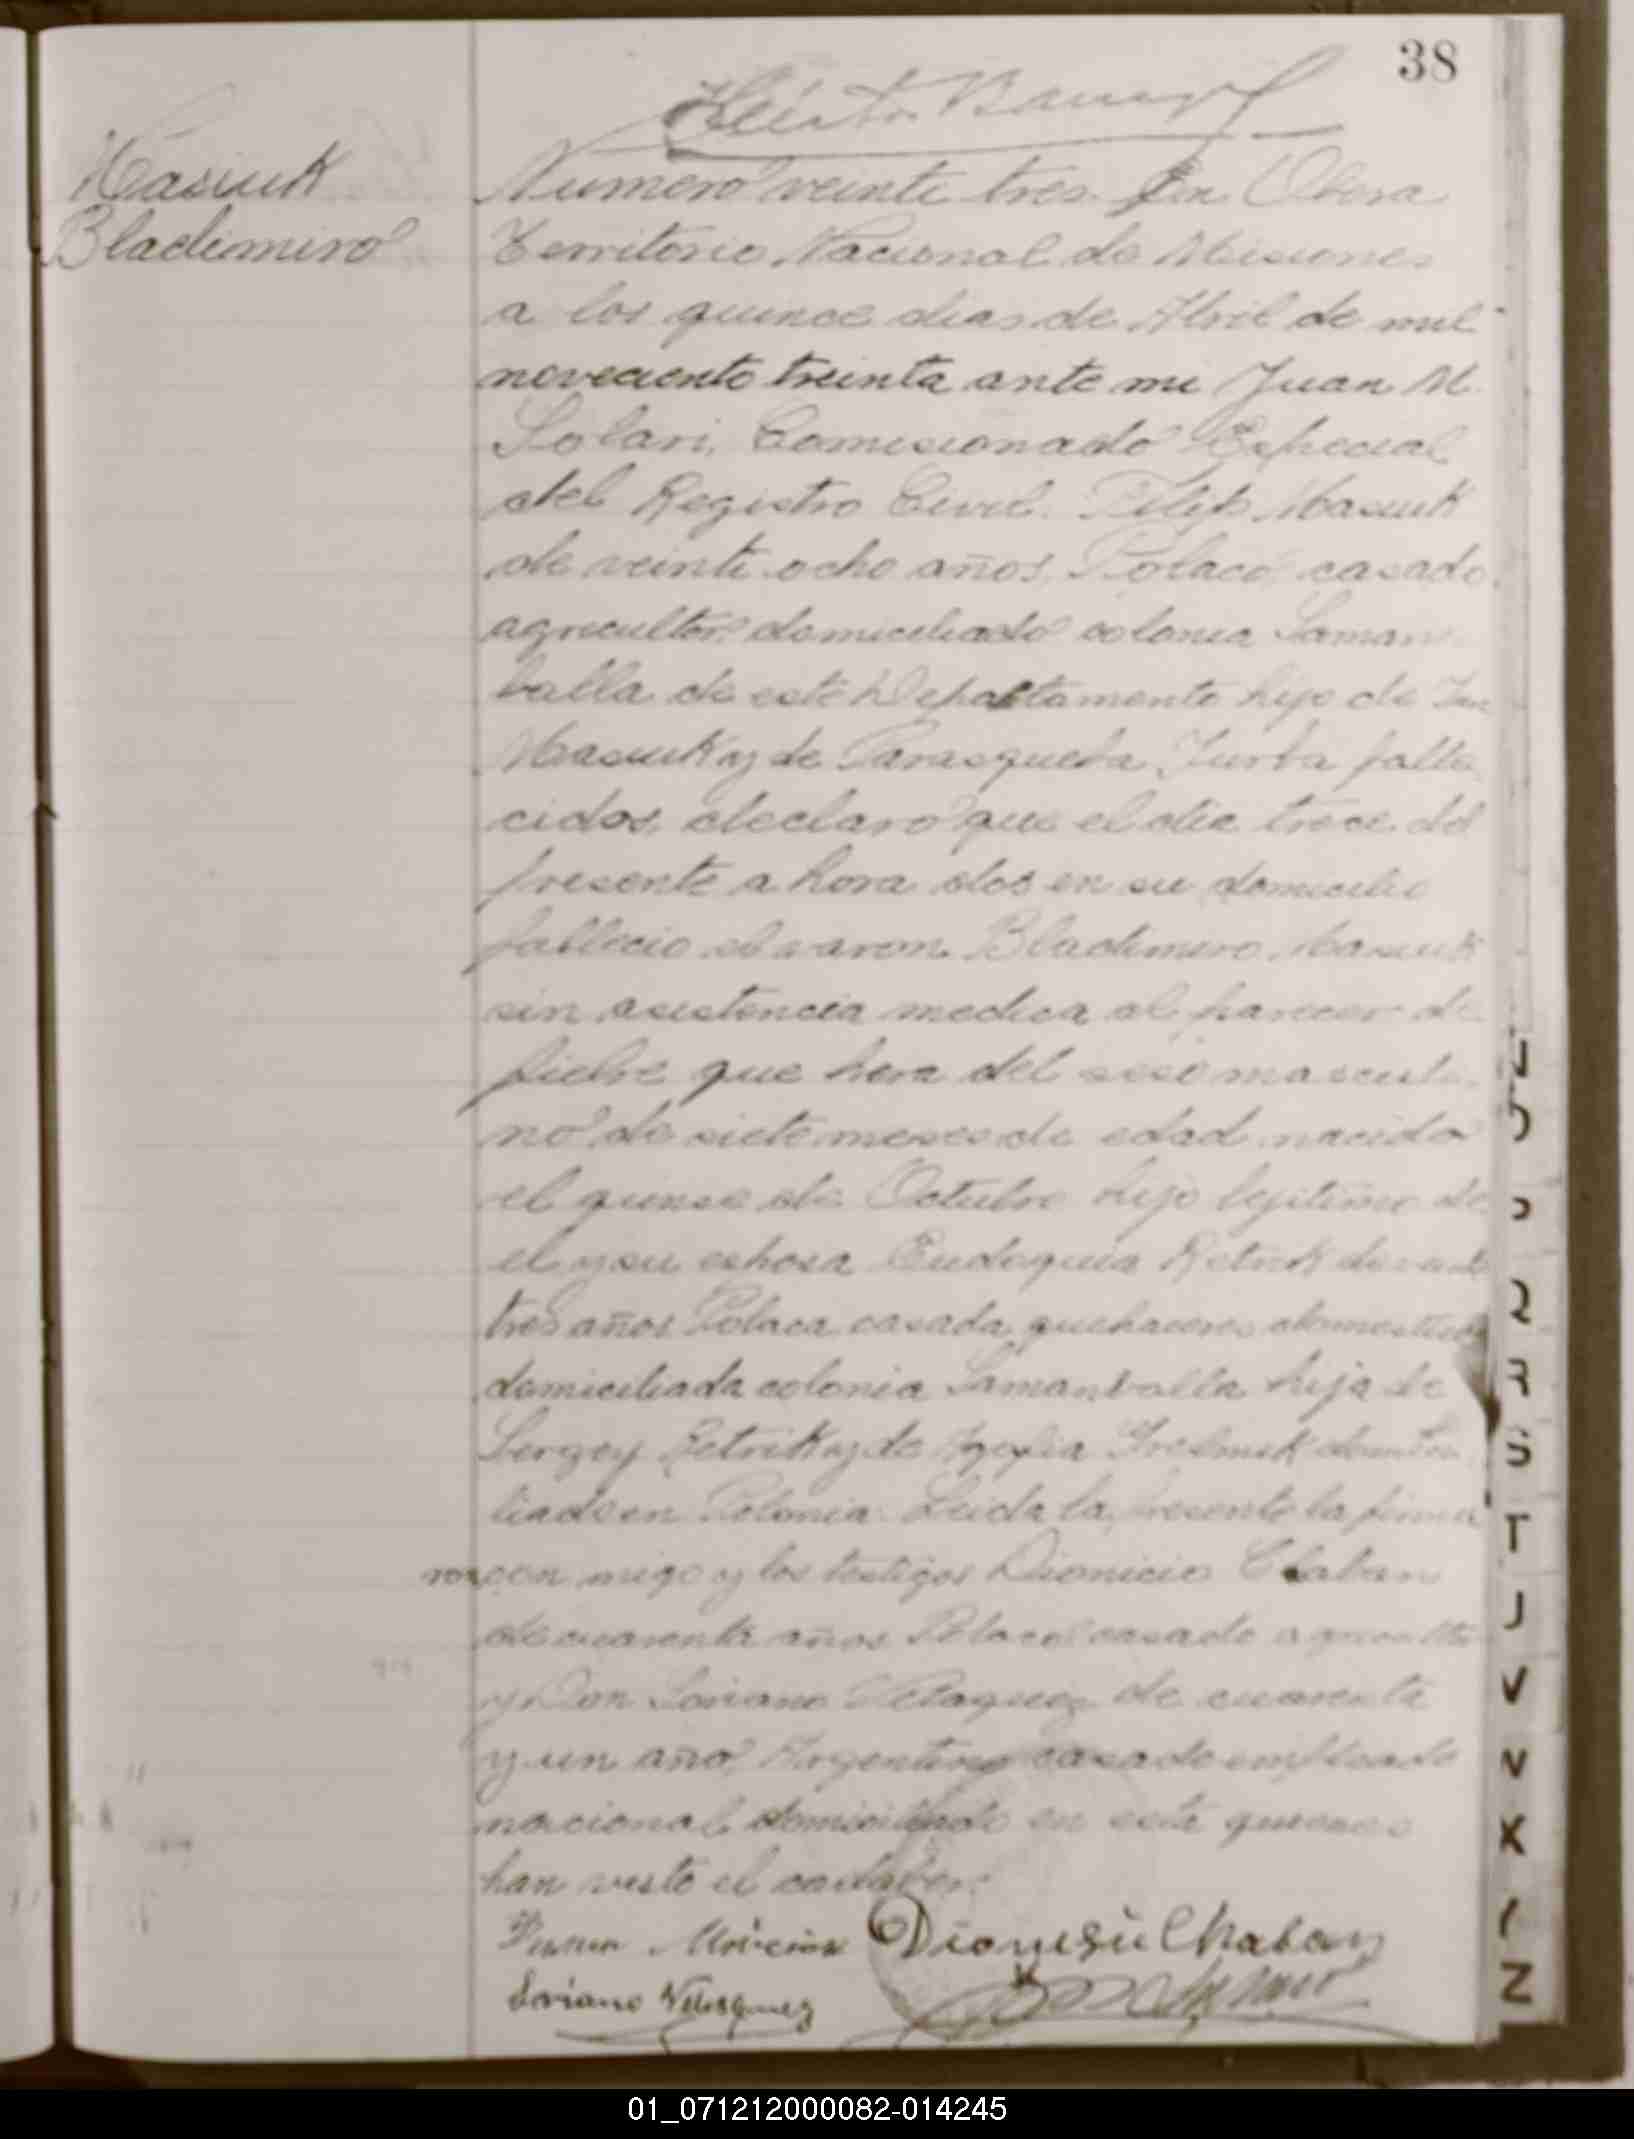 38
Masiuk
Bladimiro
Numero veinte tres. En Obera
Territorio Nacional de Misiones
a los quince dias de Abril de mil
noveciento treinta ante mi Juan M.
Solari, Comisionado Especial
del Registro Civil. Filip Masiuk
de veinte ocho años, Polaco casado
agricultor domiciliado colonia Saman
balla de este Departamento hijo de
Masiuk y de Parasqueba Jurba falle
cidos, declaro que el dia trece del
presente a hora dos en su domicilio
fallecio el varon Bladimiro Masiuk
sin asistencia medica al parecer de
fiebre que hera del sexo masculi
no de siete meses de edad nacido
el quinse de Octubre hijo lejitimo de
el y su esposa Eudoquia Retrik de veinte
tres años Polaca casada quehaceres domesticos
domiciliada colonia Samanballa hija de
Sergey Retrik y de domici
liados en Polonia. Leida la presente la firma
ron con migo y los testigos Dionicio Chaban
de cuarenta años Polaco casado agricultor
y Don Soriano Velasquez de cuarenta
y un año Argentino casado empleado
nacional domiciliado en esta quienes
han visto el cadaber.
Dionesiu Chaban
Soriano Velasquez
J
O
P
Q
R
S
T
J
V
N
X
Z
01_071212000082-014245